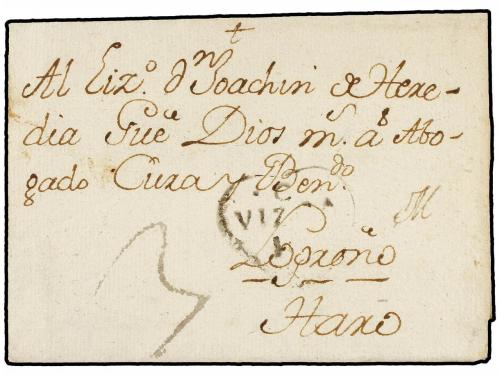 +
Al Lizº. dn Joachin de Here-
dia Gue Dios ms. as Abo-
gado Cura y Bendo.
VIZ
M
Logroñe
Haro
3